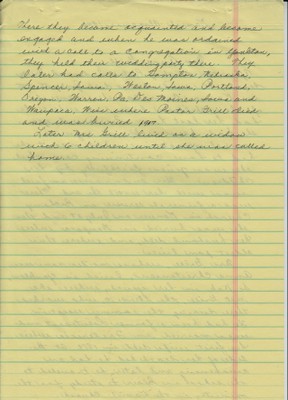 Here they became acquainted and became
engaged and when he was ordained
with a call to a Congregation in
they held their wedding party there. They
later had calls to Nebraska,
Spencer, Iowa, Weston, Iowa, Portland,
Oregon, Warren, Pa, Des Moines, Iowa and
Waupaca, Wis where Pastor Grill died
and was buried
Later Mrs Grill lived as a widow
with 6 children until she was called
home.